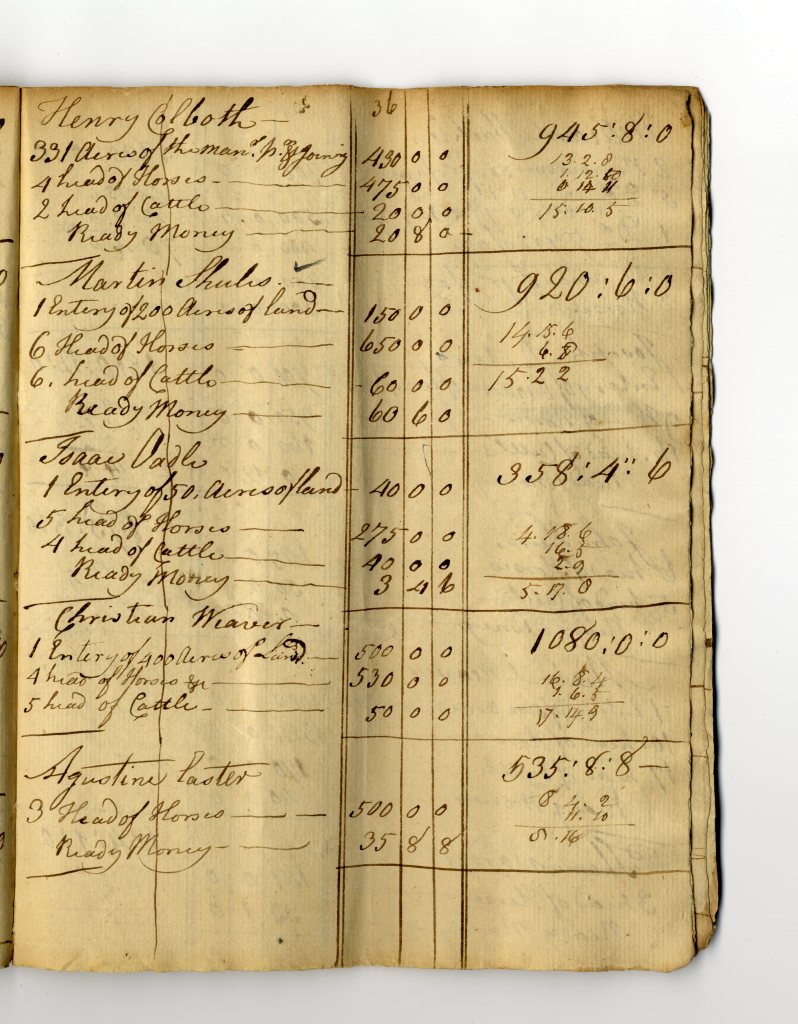 36
Henry Colboth — 945:8:0
331 Acres of the man.^r p. & Joining 430 0 0 13.2.8
4 head of Horses — 475 0 0 1.12.10
2 head of Cattle — 20 0 0 0 14 11
Ready Money — 20 8 0 15.10.5
Martin Shults — 920:6:0
1 Entery of 200 Acres of land — 150 0 0 14.15.6
6 Head of Horses — 650 0 0 6.8
6. head of Cattle — 60 0 0 15.2 2
Ready Money — 60 6 0
Isaac Oadle 358:4:6
1 Entery of 50. Acres of land - 40 0 0
5 head of Horses — 275 0 0 4.18.6
4 head of Cattle — 40 0 0 16.5
Ready Money — 3 4 6 2.9
5.17.8
Christian Weaver — 1080:0:0
1 Entery of 400 Acres of Land — 500 0 0
4 head of Horses &c — 530 0 0 16.8.4
5 head of Cattle — 50 0 0 1.6.5
17.14.9
Agustine Easter 535:8:8 —
3 Head of Horses — 500 0 0 8.4.2
Ready Money — 35 8 8 11.10
8.16